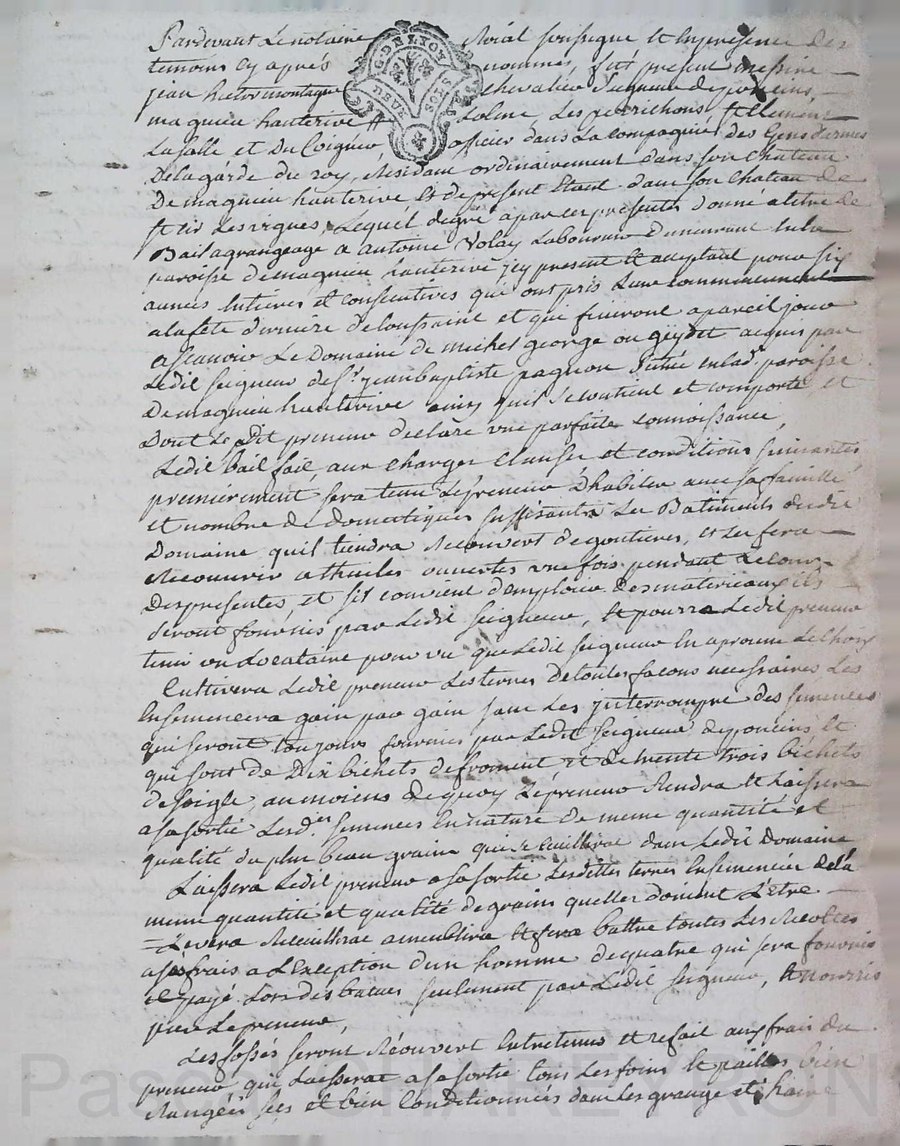 Pardevant Le notaire Roial soussigné et En presence des
temoins cy après nommés, fut present messire
jean hector montagne chevalier Seigneur de poncins,
magnieu hauterive St Lolme, Les perichons, St Clement
La salle et Du Coignet officier dans La compagnie des Gens d'armes
De la garde du roy, Résidant ordinairement dans son chateau
De magnieu hauterive et de present Etant dans son chateau de
St Cir Les vignes, Lequel de gré a par ces presentes donné a titre de
Bail a grangeage a antoine Volay Laboureur demeurant En la
paroisse de magnieu hauterive jcy present et acceptant pour six
années Entieres et consecutives qui ont pris Leur commencement
a la fete derniere de toussaint et que finiront a pareil jour
a scavoir Le Domaine de michel george ou geydet acquis par
Ledit seigneur de Sr jean baptiste pagnon situé en lad. paroisse
De magnieu hauterive ainsy quil se contient et comporte et
Dont Le dit preneur declare une parfaite connoissance,
Ledit bail fait aux charges clauses et conditions suivantes
premierement sera tenu Le preneur D'habiter avec sa famille
et nombre de domestiques suffisants Les Batiments dudit
Domaine quil tiendra Recouvert de goutieres, et Les fera
Recouvrir a thuiles ouvertes une fois pendant Le cours
Des presentes, et sil convient d'emploier des materieaux ils
seront fournis par Ledit Seigneur, et pourra Ledit preneur
tenir un Locataire pourvu que Ledit seigneur En aprouve Le choix
Cultivera Ledit preneur Les terres de toutes facons necessaires Les
Ensemencera gain par gain sans Les jnterrompre des semences
qui seront toujours fournies par Ledit seigneur de poncins, et
qui sont de Dix bichets de froment et de trente trois bichets
de soigle, au moiens de quoy Le preneur Rendra et Laissera
a sa sortie Lesd.es semences En nature de meme quantité et
qualité du plus beau grain qui se cuillirat dans Ledit Domaine
Laissera Ledit preneur a sa sortie Lesdittes terres Ensemencées de la
meme quantité et qualité de grains quelles doivent L'etre
Levera Recuillirat amenblira et fera battre toutes Les Recoltes
a ses frais a L'Exception d'un homme de quatre qui sera fourni
et payé Lors des batues seulement par Ledit seigneur, et nourris
par Le preneur,
Les fossés seront Récouvert Entretenus et refait aux frais du
preneur qui Laisserat a sa sortie tous Les foins et pailles bien
Rangées secs et bien Conditionnés dans Les grange et